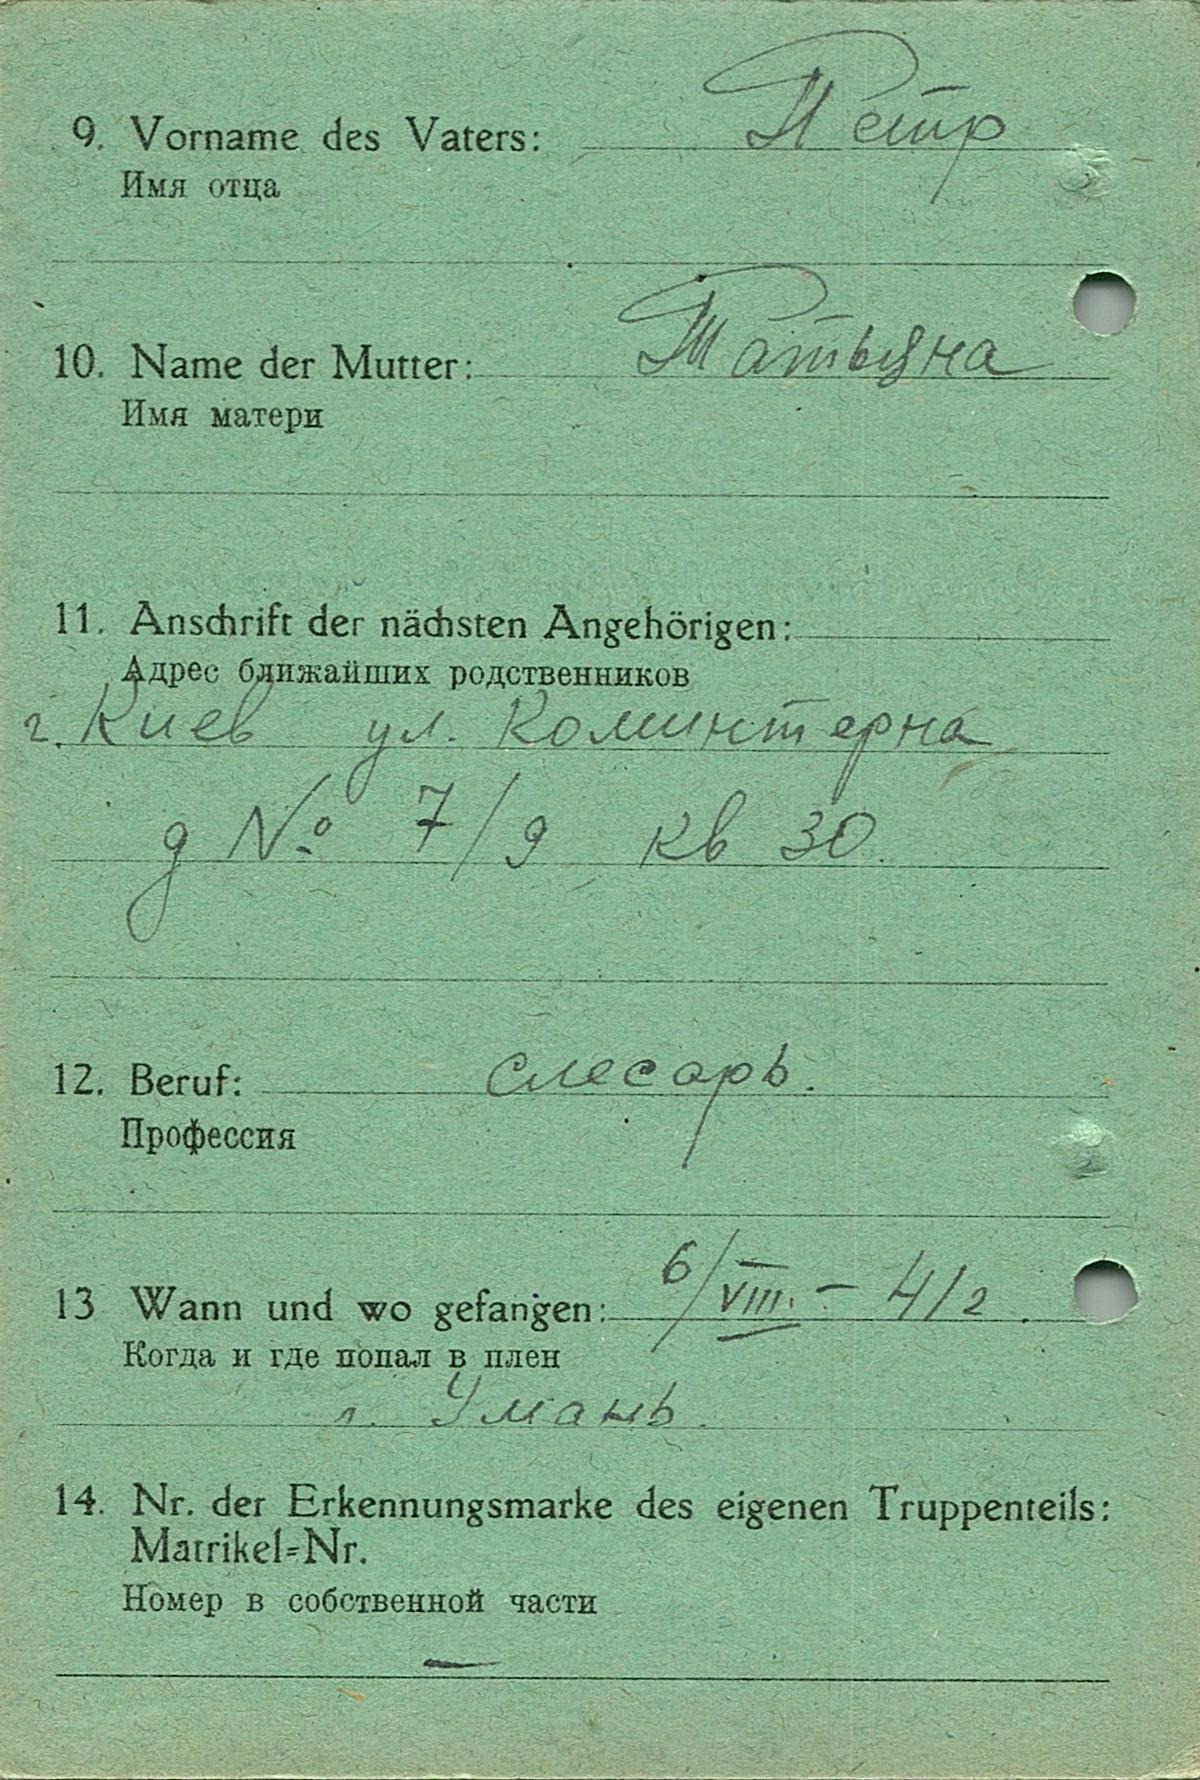 9. Vorname des Vaters: Петр
Имя отца
10. Name der Mutter: Татьяна
Имя матери
11. Anschrift der nächsten Angehörigen:
Адрес ближайших родственников
г. Киев ул. Коминтерна
д № 7/9 кв 30.
12. Beruf: слесарь.
Профессия
13 Wann und wo gefangen: 6/VIII. – 41 г.
Когда и где попал в плен
г. Умань.
14. Nr. der Erkennungsmarke des eigenen Truppenteils:
Matrikel=Nr.
Номер в собственной части
—